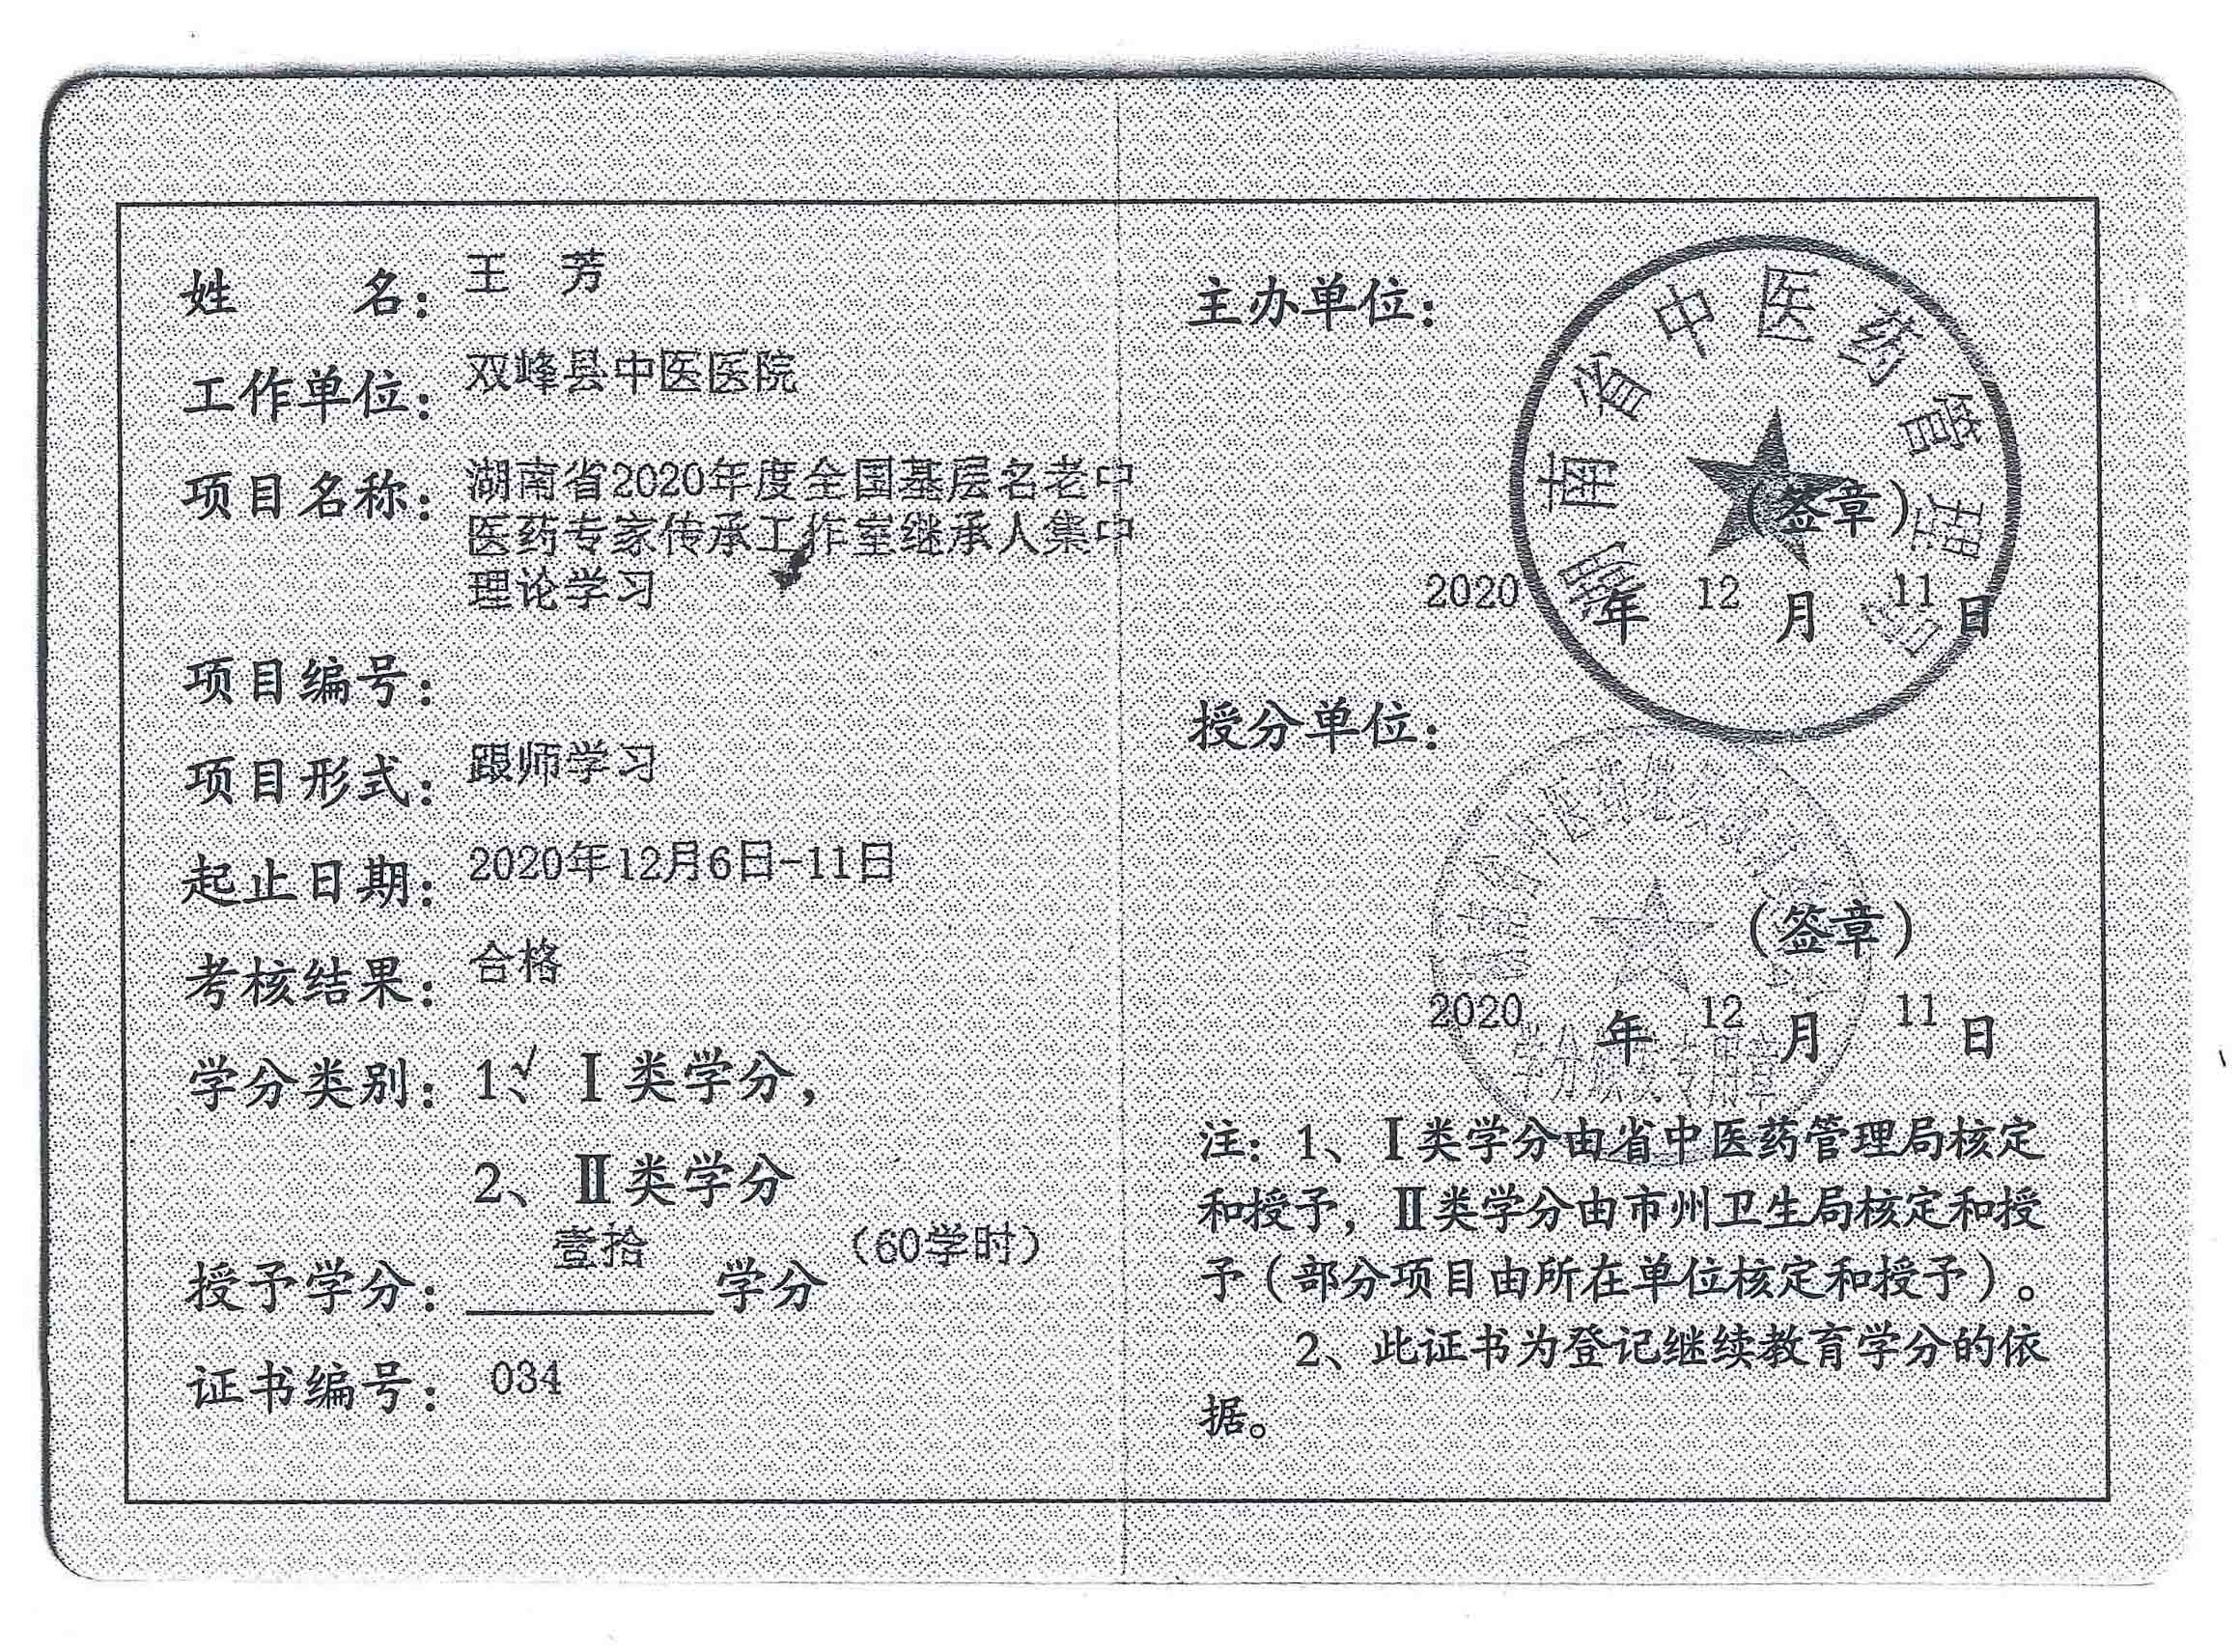 姓 名： 王 芳
工作单位： 双峰县中医医院
项目名称： 湖南省2020年度全国基层名老中
医药专家传承工作室继承人集中
理论学习
项目编号：
项目形式： 跟师学习
起止日期： 2020年12月6日-11日
考核结果： 合格
学分类别： 1、√ Ⅰ类学分，
2、Ⅱ类学分
授予学分： 壹拾 学分 （60学时）
证书编号： 034
主办单位：
湖南省中医药管理局
（签章）
2020 年 12 月 11 日
授分单位：
（签章）
2020 年 12 月 11 日
专用章
注：1、Ⅰ类学分由省中医药管理局核定
和授予，Ⅱ类学分由市州卫生局核定和授
予（部分项目由所在单位核定和授予）。
2、此证书为登记继续教育学分的依
据。